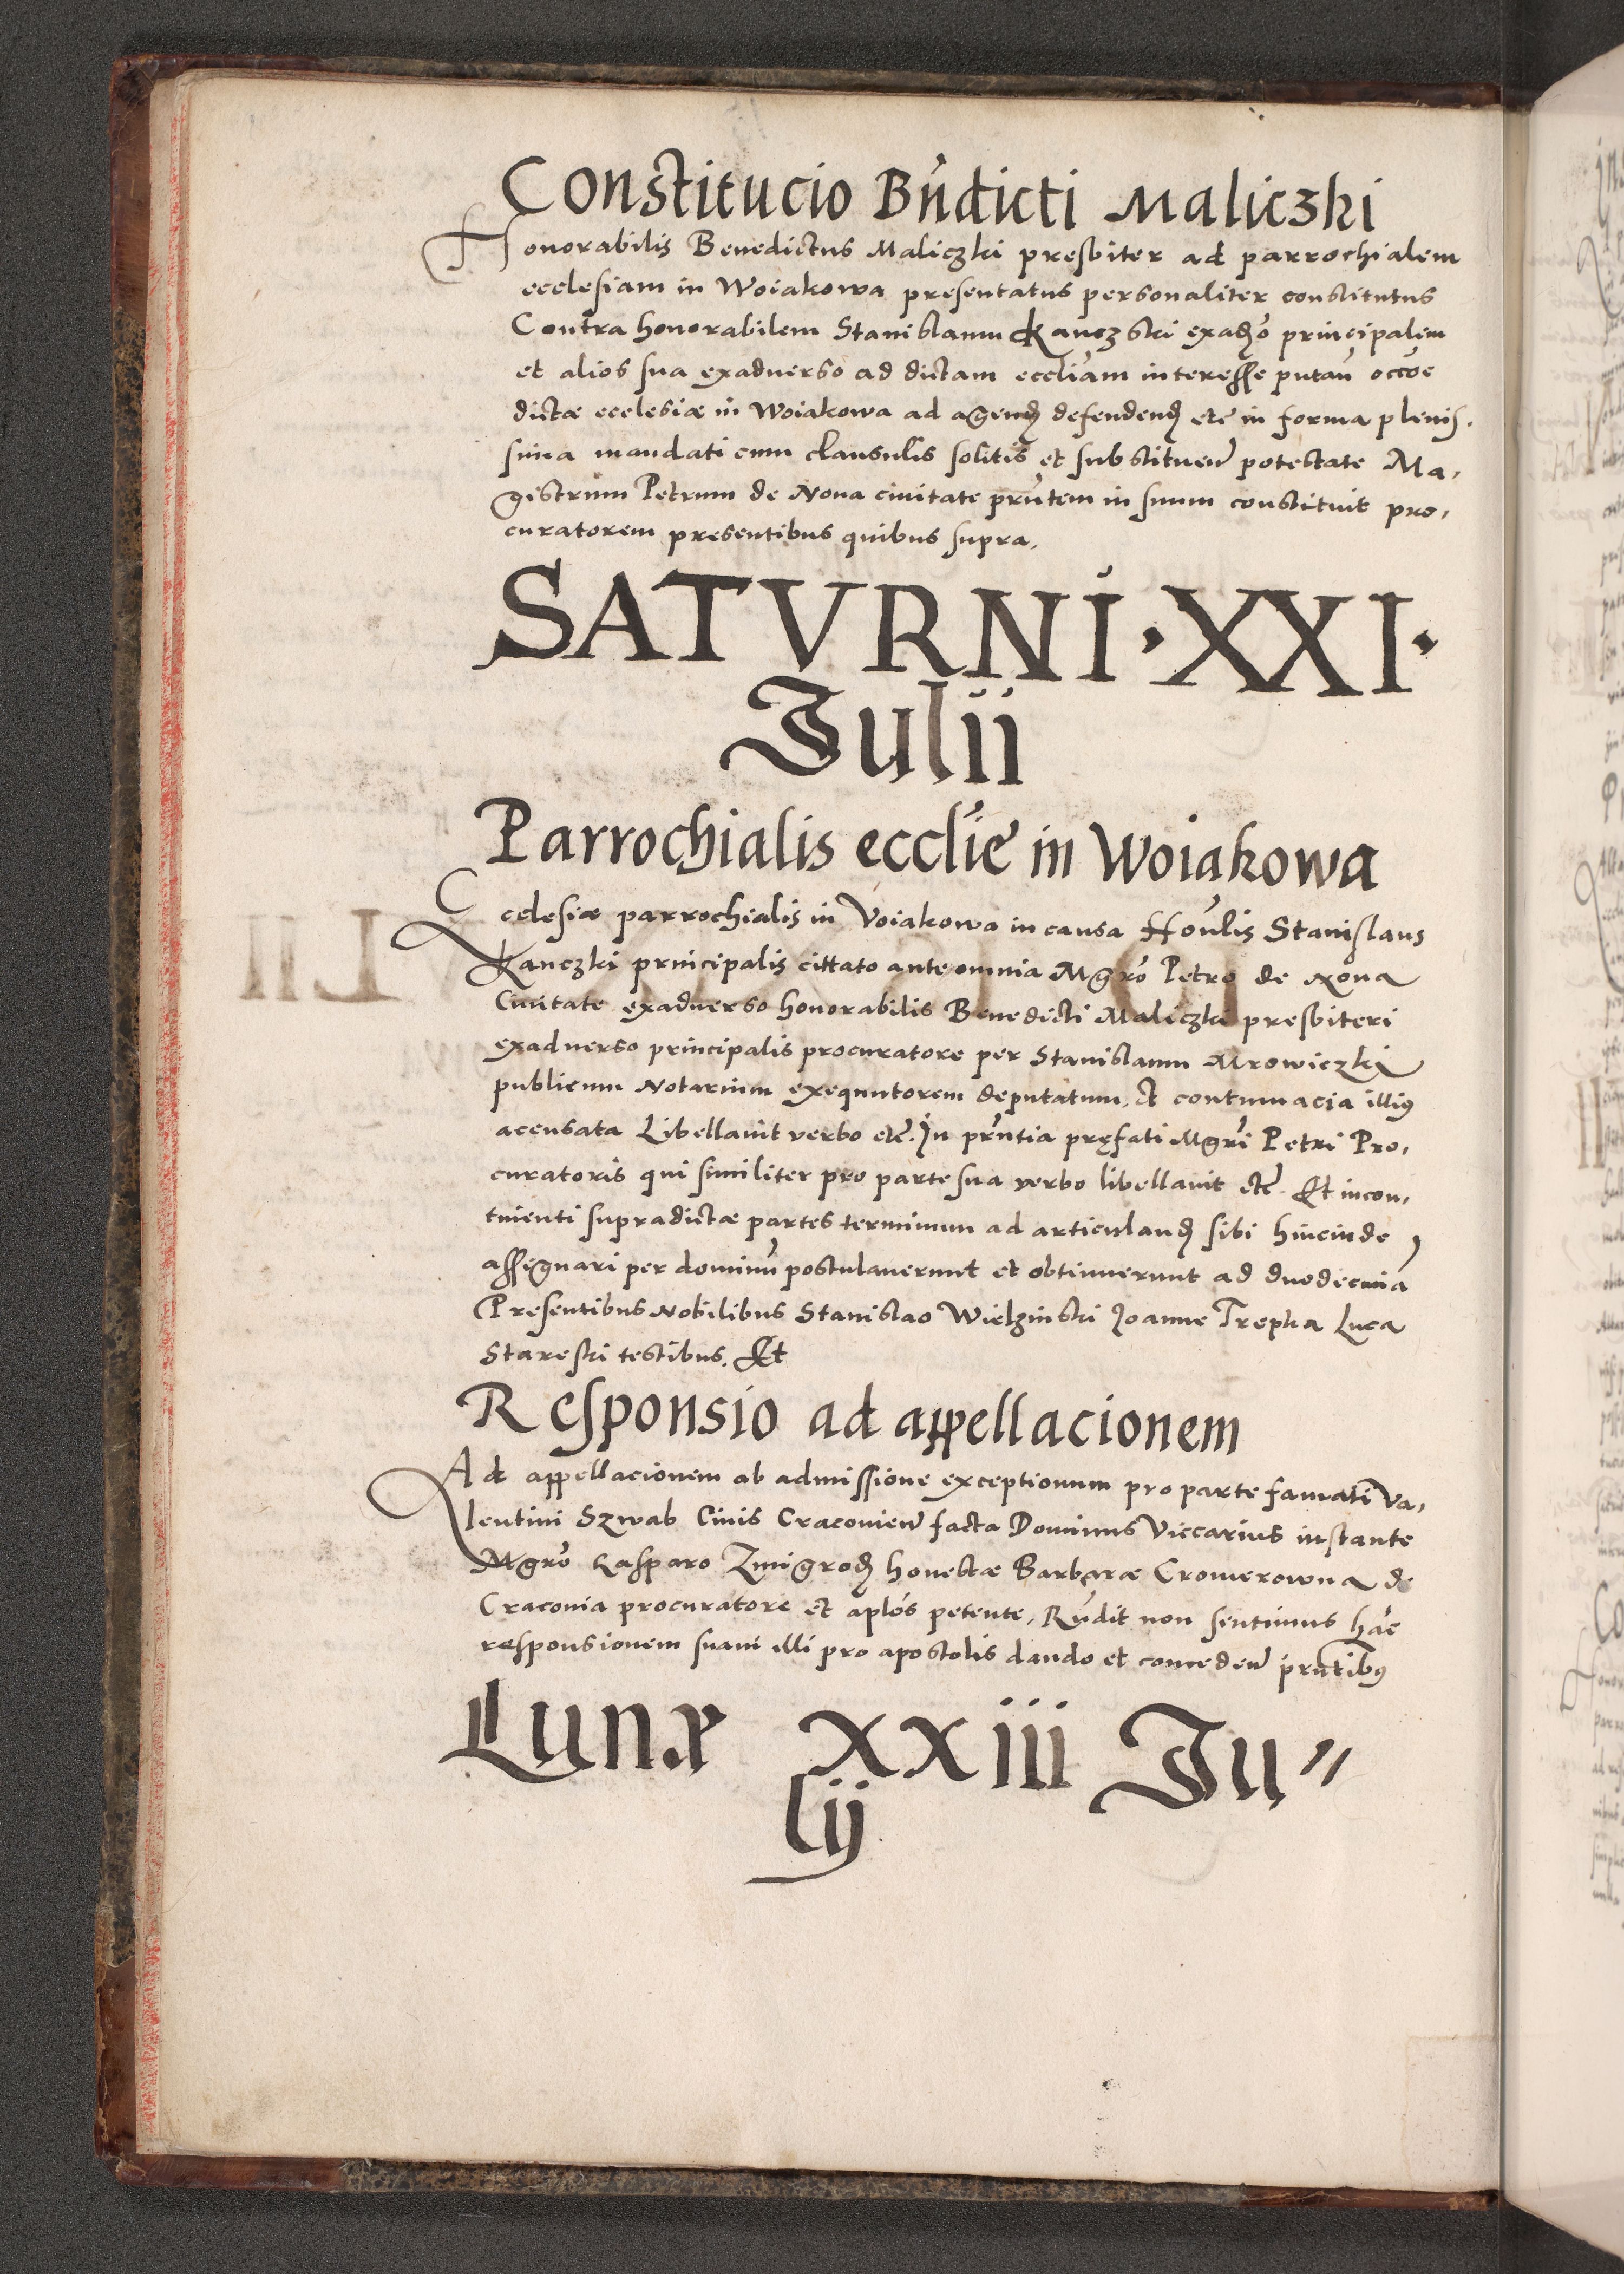 Constitucio Bn̄dicti Maliczki
Honorabilis Benedictus Maliczki presbiter ad parrochialem
ecclesiam in Woiakowa presentatus personaliter constitutus
Contra honorabilem Stanislaum Kanczski exad̄o principalem
et alios sua exaduerso ad dictam eccliam interesse putan̄ occōe
dictæ ecclesiæ in Woiakowa ad agend defendend etc in forma plenis.
sima mandati cum clausulis solitis et substituen̄ potestate Ma,
gistrum Petrum de Noua ciuitate prn̄tem in suum constituit pro,
curatorem presentibus quibus supra.
SATVRNI·XXI·
Iulii
Parrochialis ecclīe in Woiakowa
Ecclesiæ parrochialis in Voiakowa in causa Hon̄lis Stanislaus
Kanczki principalis cittato ante omnia Mgrō Petro de Noua
Ciuitate exaduerso honorabilis Benedicti Maliczki presbiteri
exaduerso principalis procuratore per Stanislaum Mrowiczki
publicum Notarium exequutorem deputatum. et contumacia illiꝰ
acensata Libellauit verbo etc. In prn̄tia pręfati Mgrī Petri Pro,
curatoris qui similiter pro parte sua verbo libellauit etc. Et incon,
tinenti supradictæ partes terminum ad articuland sibi hincinde
assignari per dominū postulauerunt et obtinuerunt ad duodecima
Presentibus Nobilibus Stanislao Wielzinski Ioanne Trepka Luca
Stareski testibus. Et
Responsio ad appellacionem
Ad appellacionem ab admissione exceptionum pro parte famati Va,
lentini Szwab Ciuis Cracouien̄ facta Dominus Viccarius instante
Mgrō Casparo Zmigrod honestæ Barbaræ Cromerowna de
Craconia procuratore et aplōs petente, Rn̄dit non sentimus hāc
responsionem suam illi pro apostolis dando et conceden̄ prn̄tibꝰ
Lunæ xxiii Iu〃
lij